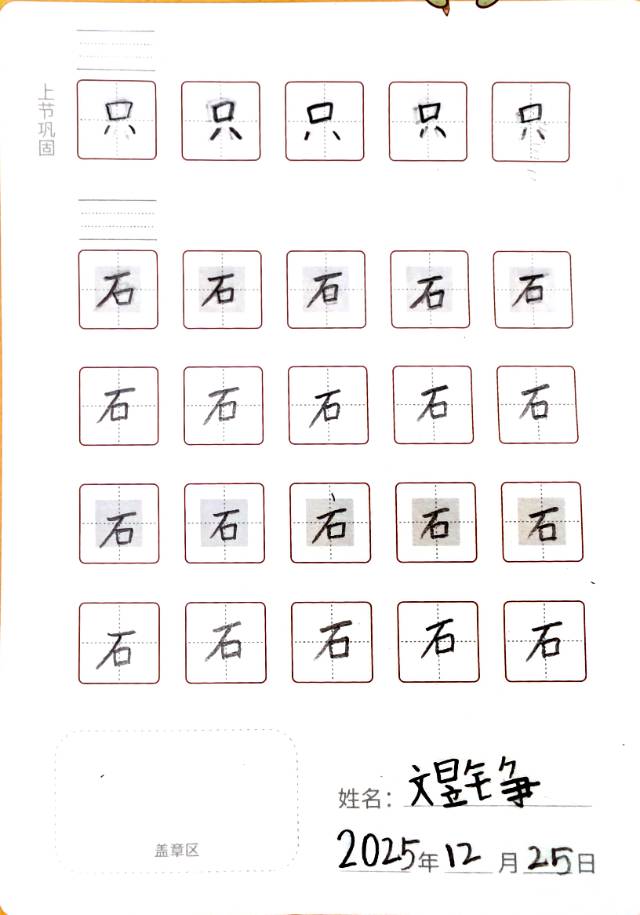 上节巩固
只 只 只 只 只
石 石 石 石 石
石 石 石 石 石
石 石 石 石 石
石 石 石 石 石
盖章区
姓名：文昱
2025年12月25日